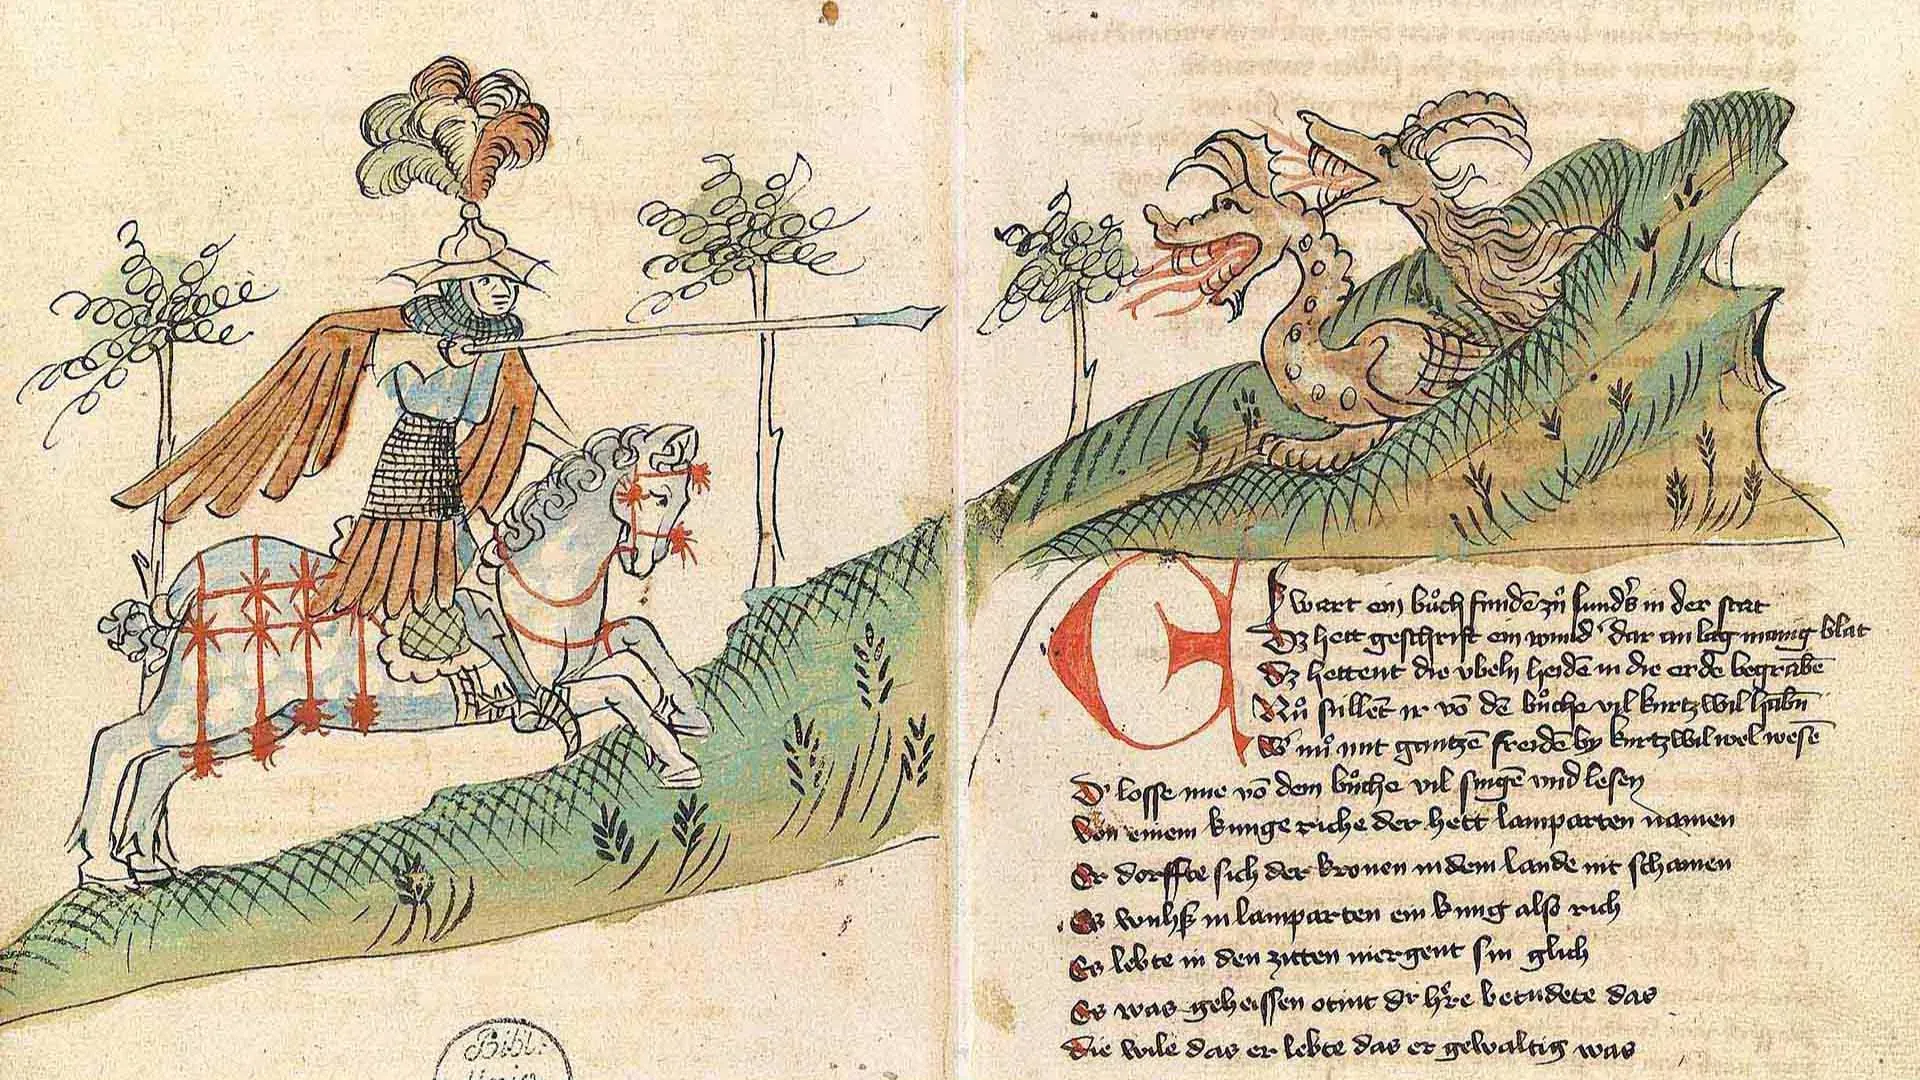 ES wart ein bůch fundē zů sunds in der stat
Dz hett geschrift ein wund' dar an lag manig blat
Dz hettent die vbeln heidē in die erde begrabē
Nů sullēt ir vō dē bůche vil kurtzwil habn
W' nů mit gantzē freidē by kurtzwil wel wesē
D' losse ime vō dem bůche vil singē vnd lesen
Von einem kunge riche der hett lamparten namen
Er dorffte sich der kronen in dem lande nit schamen
Es wuhs in lamparten ein kung also rich
Es lebte in den zitten niergent sin glich
Es was geheissen otnit dr h're betudete das
die wile das er lebte das er gewaltig was
Bibl.